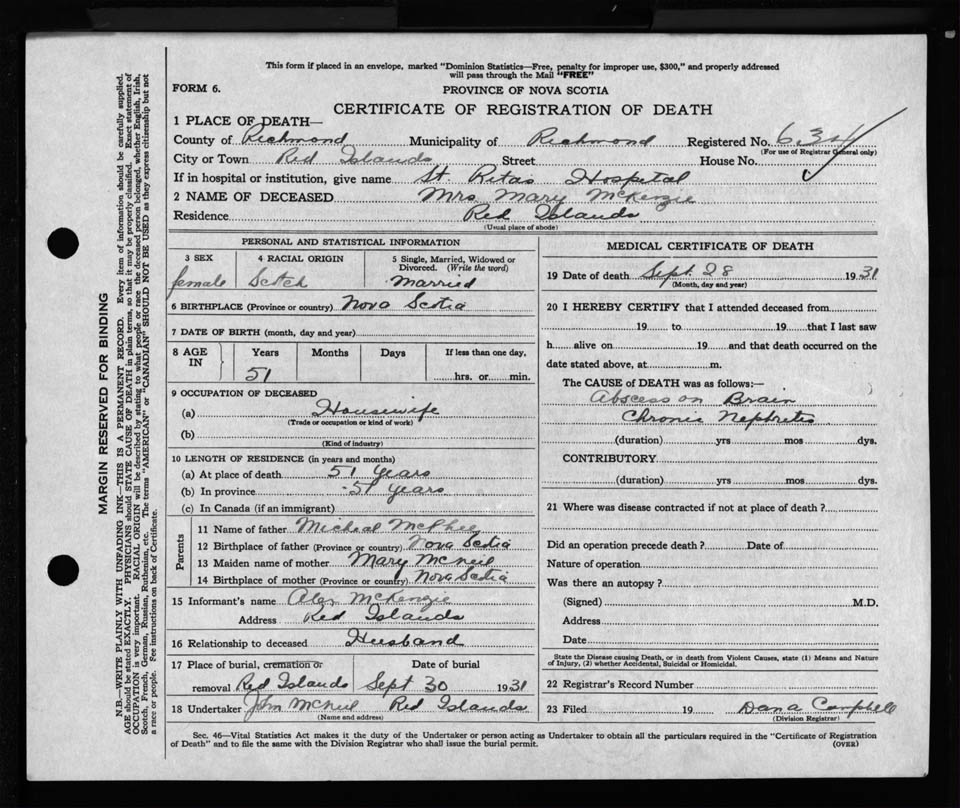 This form if placed in an envelope, marked "Dominion Statistics—Free, penalty for improper use, $300," and properly addressed
will pass through the Mail "FREE"
FORM 6.
PROVINCE OF NOVA SCOTIA
CERTIFICATE OF REGISTRATION OF DEATH
1 PLACE OF DEATH—
County of Richmond Municipality of Richmond Registered No. 634
(For use of Registrar General only)
City or Town Red Islands Street House No.
If in hospital or institution, give name St. Ritas Hospital
2 NAME OF DECEASED Mrs. Mary McKenzie
Residence Red Islands
(Usual place of abode)
PERSONAL AND STATISTICAL INFORMATION
3 SEX 4 RACIAL ORIGIN 5 Single, Married, Widowed or Divorced. (Write the word)
female Scotch Married
6 BIRTHPLACE (Province or country) Nova Scotia
7 DATE OF BIRTH (month, day and year)
8 AGE IN Years Months Days If less than one day,
51 hrs. or min.
9 OCCUPATION OF DECEASED
(a) Housewife
(Trade or occupation or kind of work)
(b)
(Kind of industry)
10 LENGTH OF RESIDENCE (in years and months)
(a) At place of death 51 Years
(b) In province 51 years
(c) In Canada (if an immigrant)
Parents
11 Name of father Micheal McPhee
12 Birthplace of father (Province or country) Nova Scotia
13 Maiden name of mother Mary McNeil
14 Birthplace of mother (Province or country) Nova Scotia
15 Informant's name Alex McKenzie
Address Red Islands
16 Relationship to deceased Husband
17 Place of burial, cremation or Date of burial
removal Red Islands Sept 30 1931
18 Undertaker John McNeil Red Islands
(Name and address)
MEDICAL CERTIFICATE OF DEATH
19 Date of death Sept. 28 1931
(Month, day and year)
20 I HEREBY CERTIFY that I attended deceased from
19 to 19 that I last saw
h alive on 19 and that death occurred on the
date stated above, at m.
The CAUSE of DEATH was as follows:—
Abscess on Brain
Chronic Nephretis
(duration) yrs mos dys.
CONTRIBUTORY
(duration) yrs mos dys.
21 Where was disease contracted if not at place of death?
Did an operation precede death? Date of
Nature of operation
Was there an autopsy?
(Signed) M.D.
Address
Date
State the Disease causing Death, or in death from Violent Causes, state (1) Means and Nature
of Injury, (2) whether Accidental, Suicidal or Homicidal.
22 Registrar's Record Number
23 Filed 19 Dana Campbell
(Division Registrar)
Sec. 46—Vital Statistics Act makes it the duty of the Undertaker or person acting as Undertaker to obtain all the particulars required in the "Certificate of Registration
of Death" and to file the same with the Division Registrar who shall issue the burial permit.
(OVER)
MARGIN RESERVED FOR BINDING
N.B.—WRITE PLAINLY WITH UNFADING INK—THIS IS A PERMANENT RECORD. Every item of information should be carefully supplied.
AGE should be stated EXACTLY. PHYSICIANS should STATE CAUSE OF DEATH in plain terms, so that it may be properly classified. Exact statement of
OCCUPATION is very important. RACIAL ORIGIN will be described by stating to what people or race the deceased person belonged, whether English, Irish,
Scotch, French, German, Russian, Ruthenian, etc. The terms "AMERICAN" or "CANADIAN" SHOULD NOT BE USED as they express citizenship but not
a race or people. See instructions on back of Certificate.